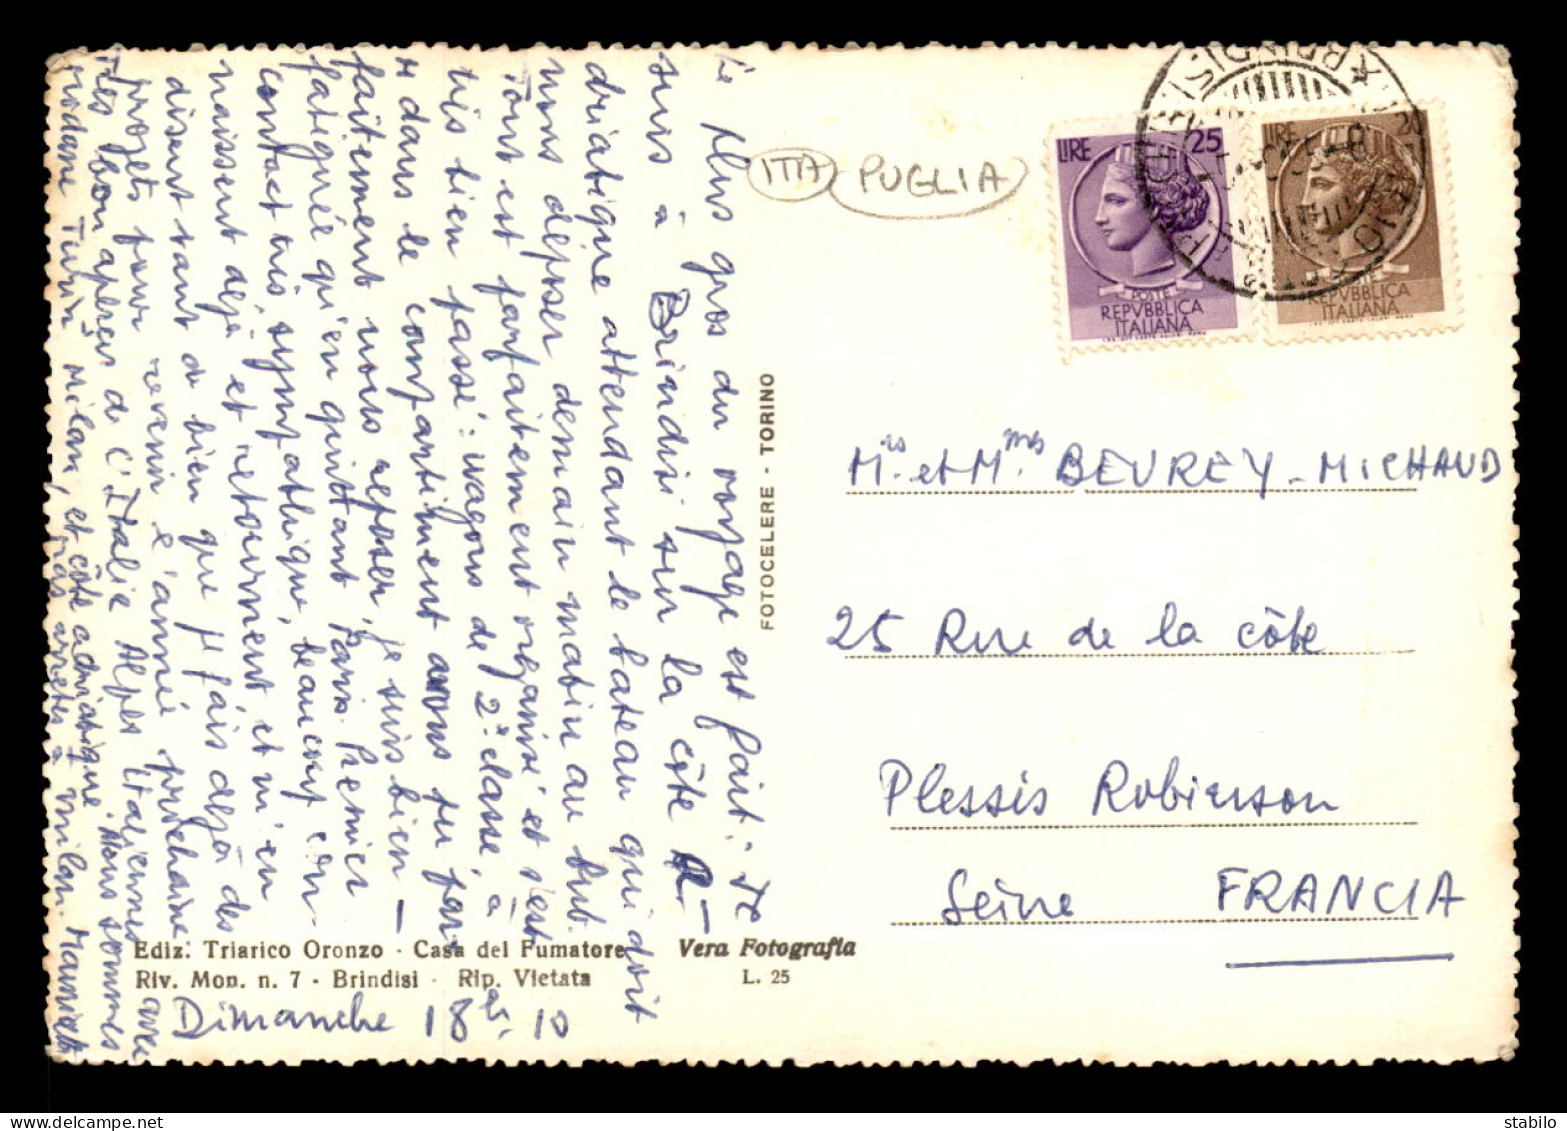 Le plus gros du voyage est fait. Je
suis à Brindisi sur la côte A-
driatique attendant le bateau qui doit
nous déposer demain matin au but.
Tout est parfaitement organisé et s'est
très bien passé : wagons de 2e classe, à
4 dans le compartiment avons pu par-
faitement nous reposer, je suis bien -
fatiguée qu'en quittant Paris. Premier
contact très sympathique, beaucoup con-
naissent déjà et retournent et m'en
disent tant de bien que je fais déjà des
projets pour revenir l'année prochaine
Très bon aperçu de l'Italie Alpes italiennes avec
Modane Turin Milan, et côte adriatique. Nous sommes
arrêtés à Milan. Mauricette
Dimanche 18 10
ITA PUGLIA
LIRE 25
POSTE
REPVBBLICA
ITALIANA
LIRE 20
POSTE
REPVBBLICA
ITALIANA
BRINDISI
Mrs et Mmes BEVREY-MICHAUD
25 Rue de la côte
Plessis Robinson
Seine FRANCIA
FOTOCELERE - TORINO
Ediz. Triarico Oronzo - Casa del Fumatore
Riv. Mon. n. 7 - Brindisi - Rip. Vietata
Vera Fotografia
L. 25
stabilo